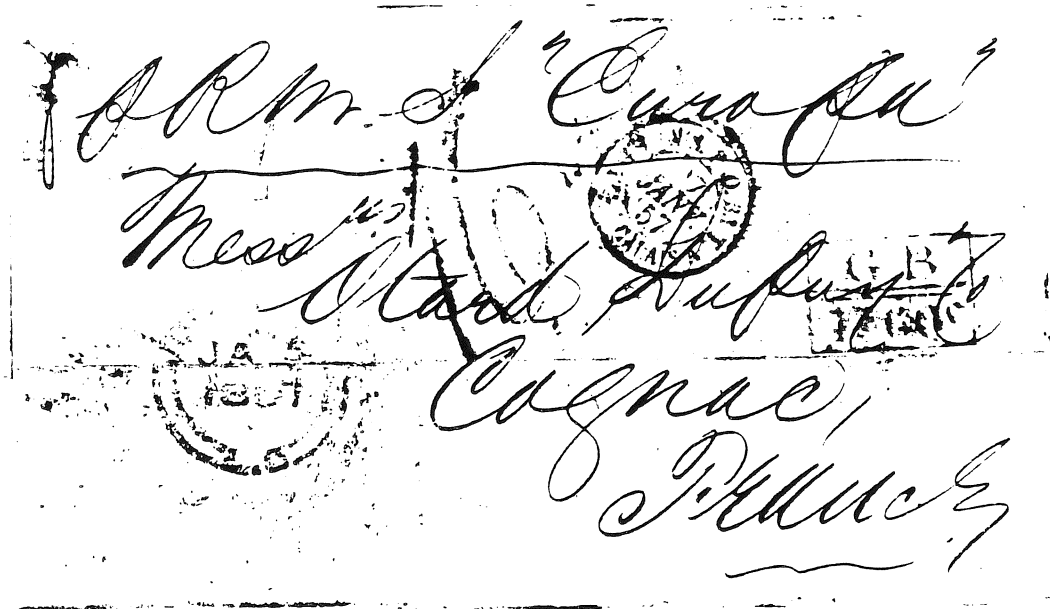 P R M. S "Europa"
Mess rs
Otard, Dupuy & Co
Cognac,
France
JAN
57
G B
1F 60 C
JA 5
1857